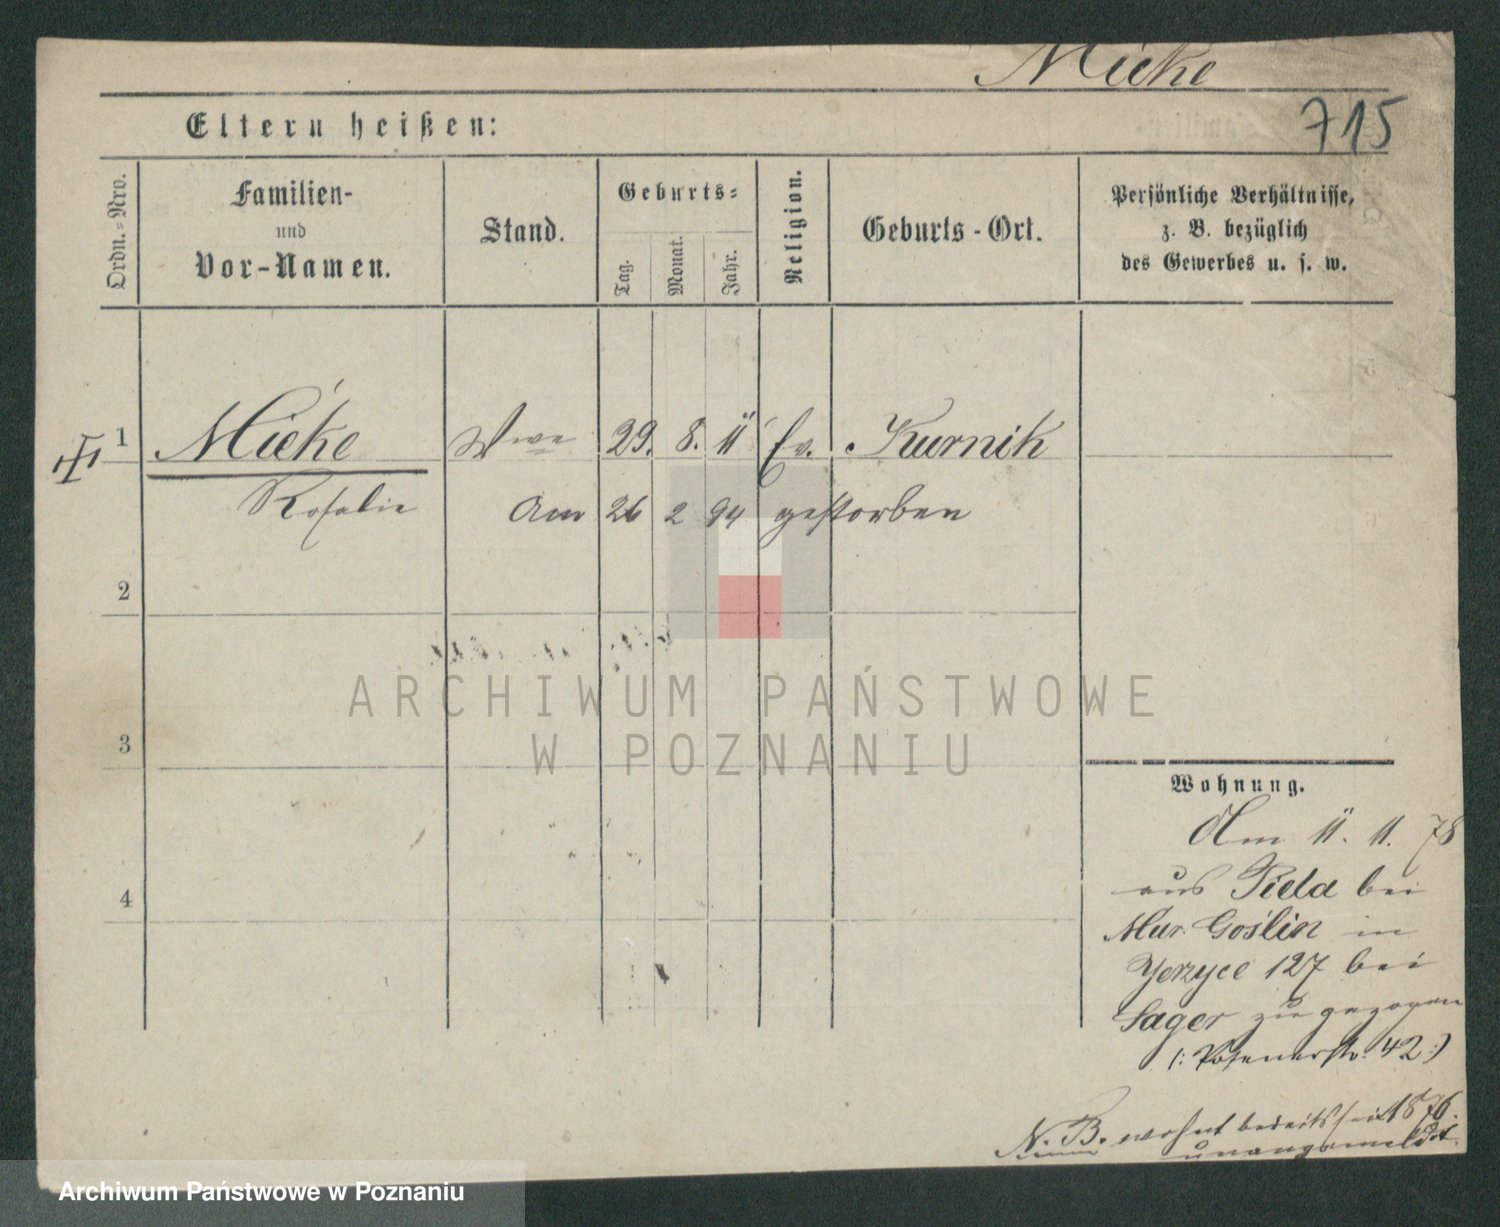 Mieke
715
Eltern heißen:
Ordn.=Nro.
Familien-
und
Vor-Namen.
Stand.
Geburts=
Tag.
Monat.
Jahr.
Religion.
Geburts-Ort.
Persönliche Verhältnisse,
z. B. bezüglich
des Gewerbes u. s. w.
1 Mieke Wwe 29. 8. 11 Ev. Kurnik
Rosalie Am 26 2 94 gestorben
2
3
4
ARCHIWUM PAŃSTWOWE
W POZNANIU
Wohnung.
Am 11. 11. 78
aus Piela bei
Mur. Goślin in
Jerzyce 127 bei
Sager zugezogen
(: Posenerstr. 42 :)
N. B. wohnt bereits seit 1876.
unangemeldet.
Archiwum Państwowe w Poznaniu